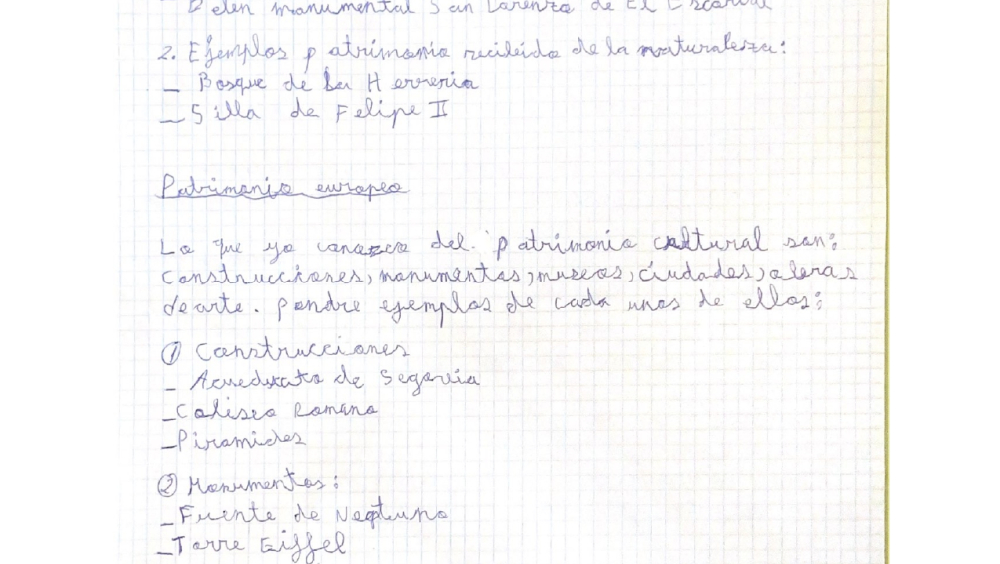 Belen monumental San Lorenzo de El Escorial
2. Ejemplos patrimonio recibido de la naturaleza:
_ Bosque de La Herreria
_ Silla de Felipe II
Patrimonio europeo
Lo que yo conozco del patrimonio cultural son:
Construcciones, monumentos, museos, ciudades, obras
de arte. Pondre ejemplos de cada unos de ellos:
① Construcciones
- Acueducto de Segovia
_ Coliseo Romano
_ Piramides
② Monumentos:
_ Fuente de Neptuno
_ Torre Eiffel